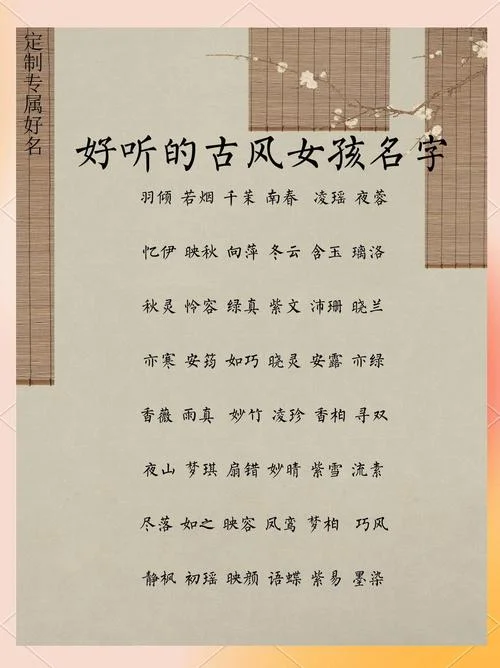 定制专属好名
好听的古风女孩名字
羽倾 若烟 千茉 南春 凌瑶 夜蓉
忆伊 映秋 向萍 冬云 含玉 璃洛
秋灵 怜容 绿真 紫文 沛珊 晓兰
亦寒 安筠 如巧 晓灵 安露 亦绿
香薇 雨真 妙竹 凌珍 香柏 寻双
夜山 梦琪 扇错 妙晴 紫雪 流素
尽落 如之 映容 凤鸾 梦柏 巧风
静枫 初瑶 映颜 语蝶 紫易 墨染